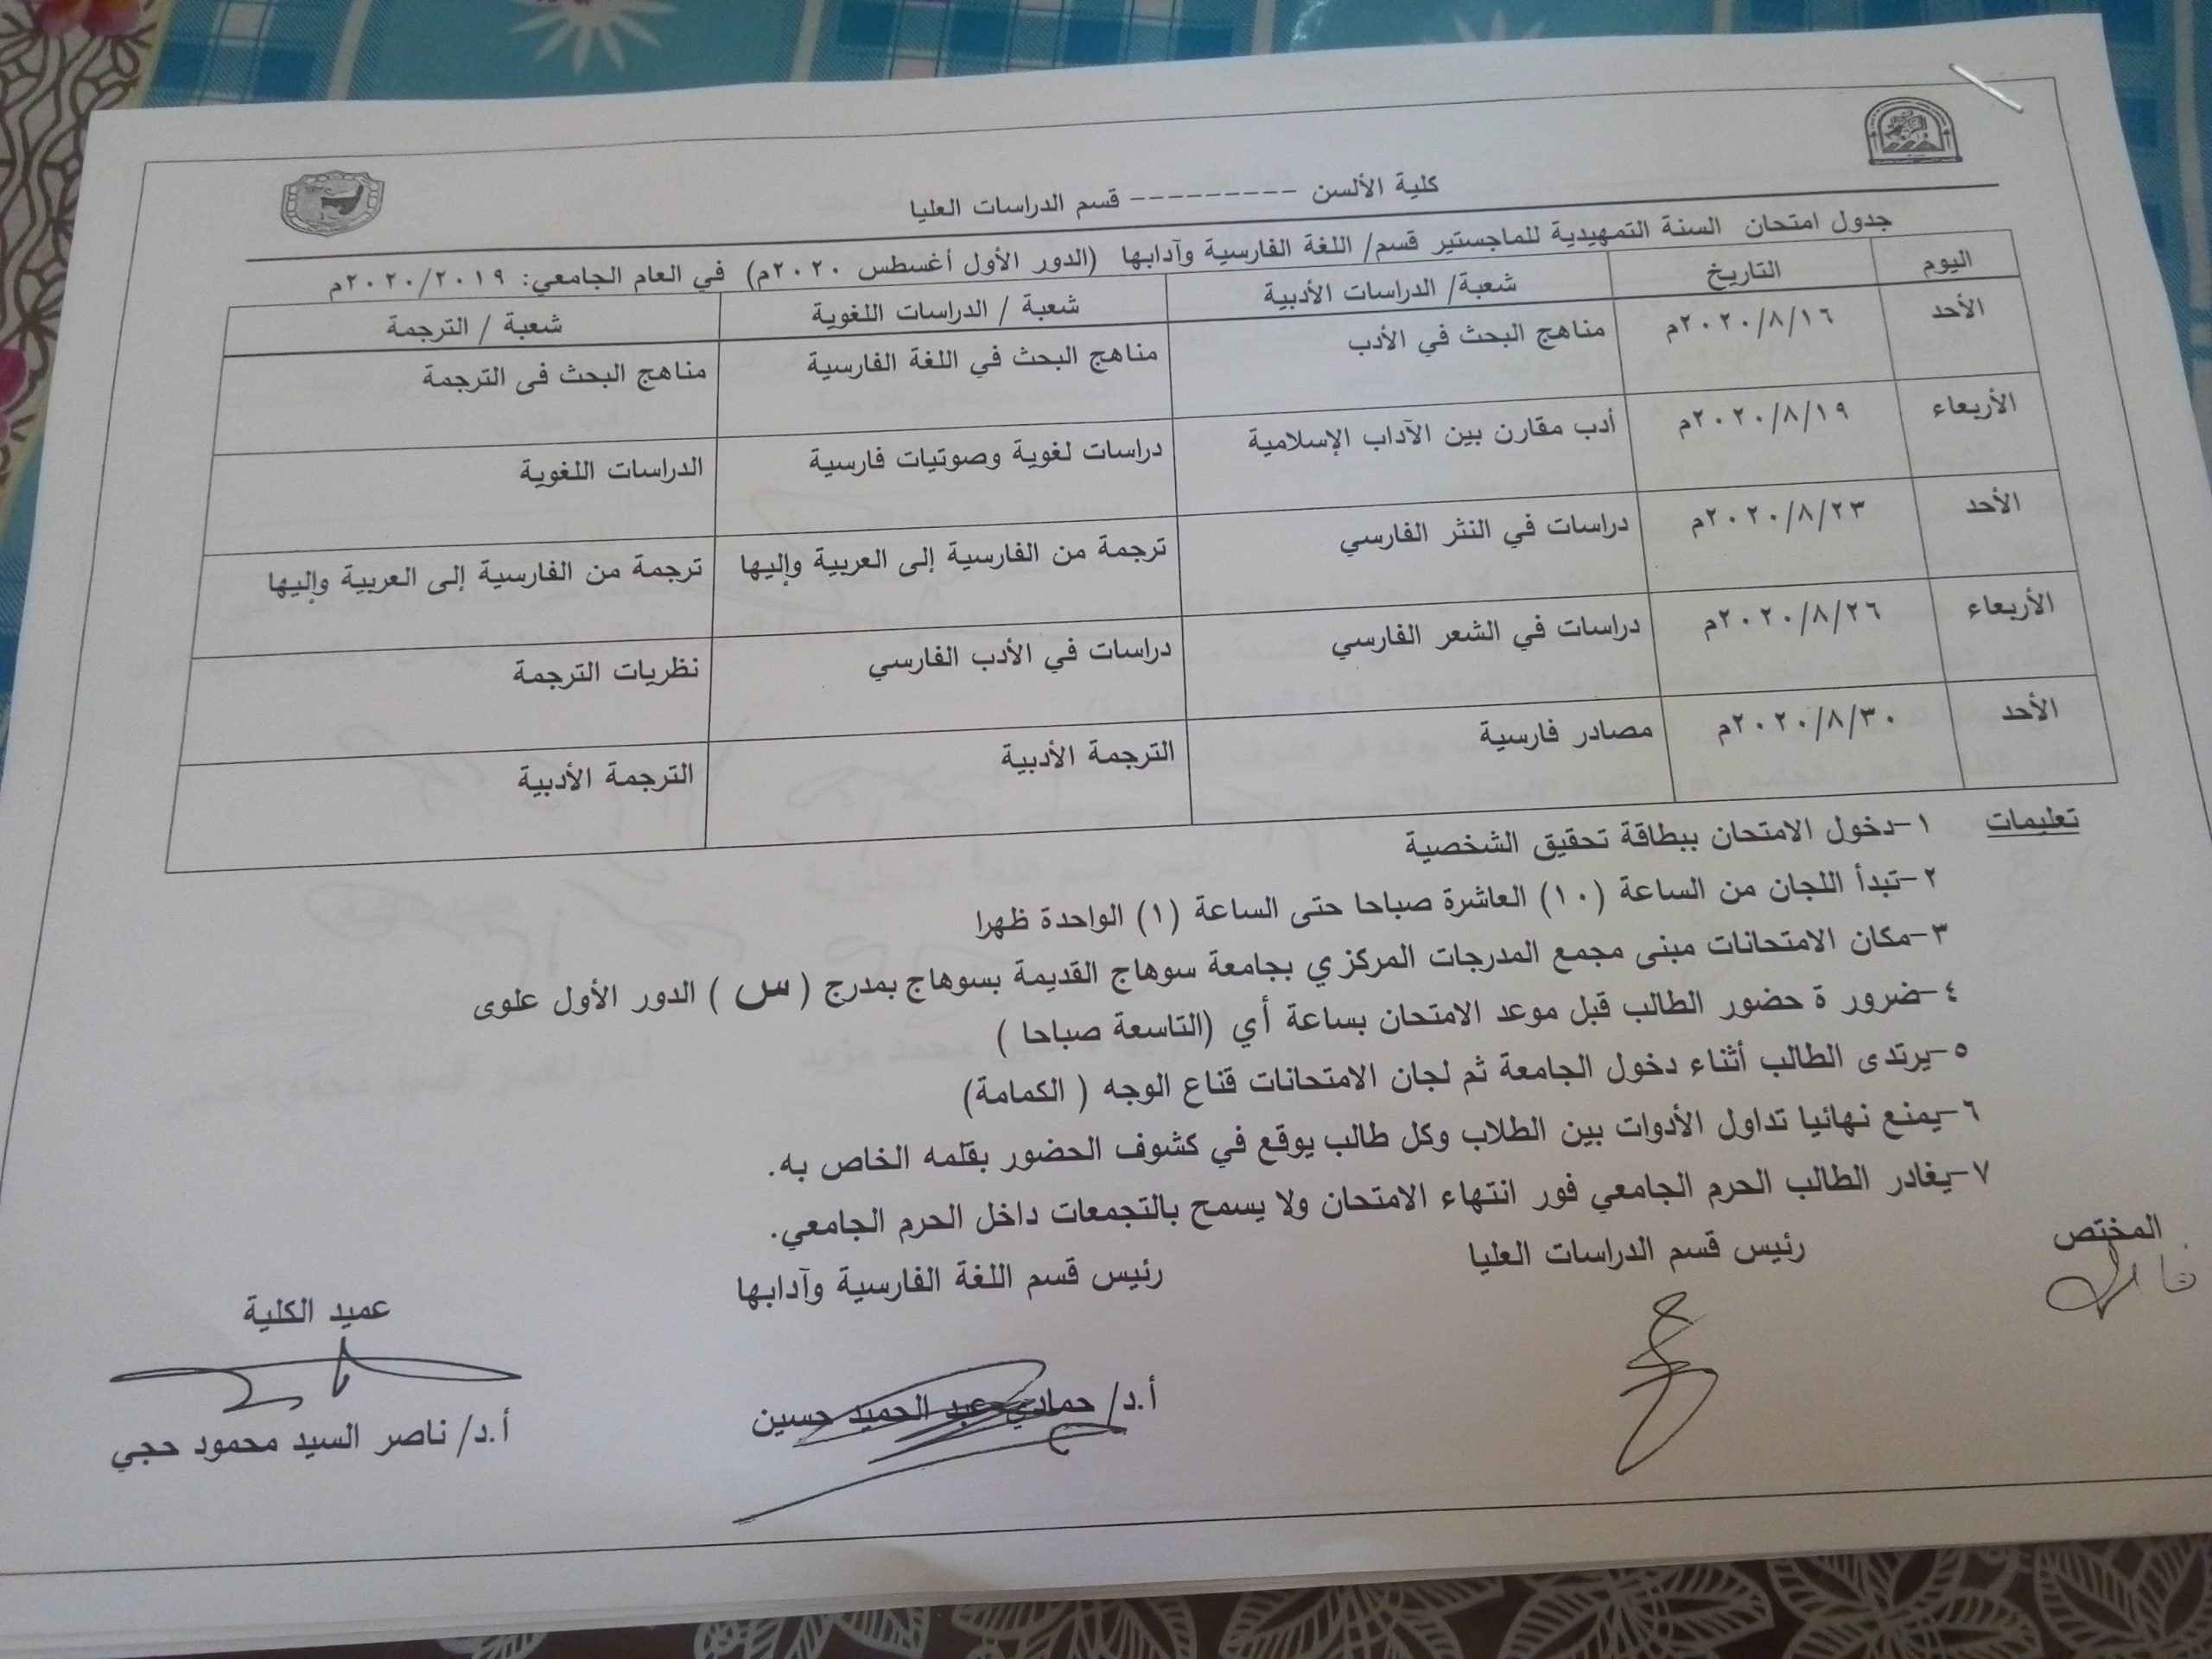 كلية الألسن --------- قسم الدراسات العليا
جدول امتحان السنة التمهيدية للماجستير قسم/ اللغة الفارسية وآدابها (الدور الأول أغسطس ٢٠٢٠م) في العام الجامعي: ٢٠٢٠/٢٠١٩م
اليوم التاريخ شعبة/ الدراسات الأدبية شعبة / الدراسات اللغوية شعبة / الترجمة
الأحد ٢٠٢٠/٨/١٦م مناهج البحث في الأدب مناهج البحث في اللغة الفارسية مناهج البحث فى الترجمة
الأربعاء ٢٠٢٠/٨/١٩م أدب مقارن بين الآداب الإسلامية دراسات لغوية وصوتيات فارسية الدراسات اللغوية
الأحد ٢٠٢٠/٨/٢٣م دراسات في النثر الفارسي ترجمة من الفارسية إلى العربية وإليها ترجمة من الفارسية إلى العربية وإليها
الأربعاء ٢٠٢٠/٨/٢٦م دراسات في الشعر الفارسي دراسات في الأدب الفارسي نظريات الترجمة
الأحد ٢٠٢٠/٨/٣٠م مصادر فارسية الترجمة الأدبية الترجمة الأدبية
تعليمات ١-دخول الامتحان ببطاقة تحقيق الشخصية
٢-تبدأ اللجان من الساعة (١٠) العاشرة صباحا حتى الساعة (١) الواحدة ظهرا
٣-مكان الامتحانات مبنى مجمع المدرجات المركزي بجامعة سوهاج القديمة بسوهاج بمدرج ( س ) الدور الأول علوى
٤-ضرور ة حضور الطالب قبل موعد الامتحان بساعة أي (التاسعة صباحا )
٥-يرتدى الطالب أثناء دخول الجامعة ثم لجان الامتحانات قناع الوجه ( الكمامة)
٦-يمنع نهائيا تداول الأدوات بين الطلاب وكل طالب يوقع في كشوف الحضور بقلمه الخاص به.
٧-يغادر الطالب الحرم الجامعي فور انتهاء الامتحان ولا يسمح بالتجمعات داخل الحرم الجامعي.
المختص رئيس قسم الدراسات العليا رئيس قسم اللغة الفارسية وآدابها عميد الكلية
أ.د/ حمادي عبد الحميد حسين أ.د/ ناصر السيد محمود حجي